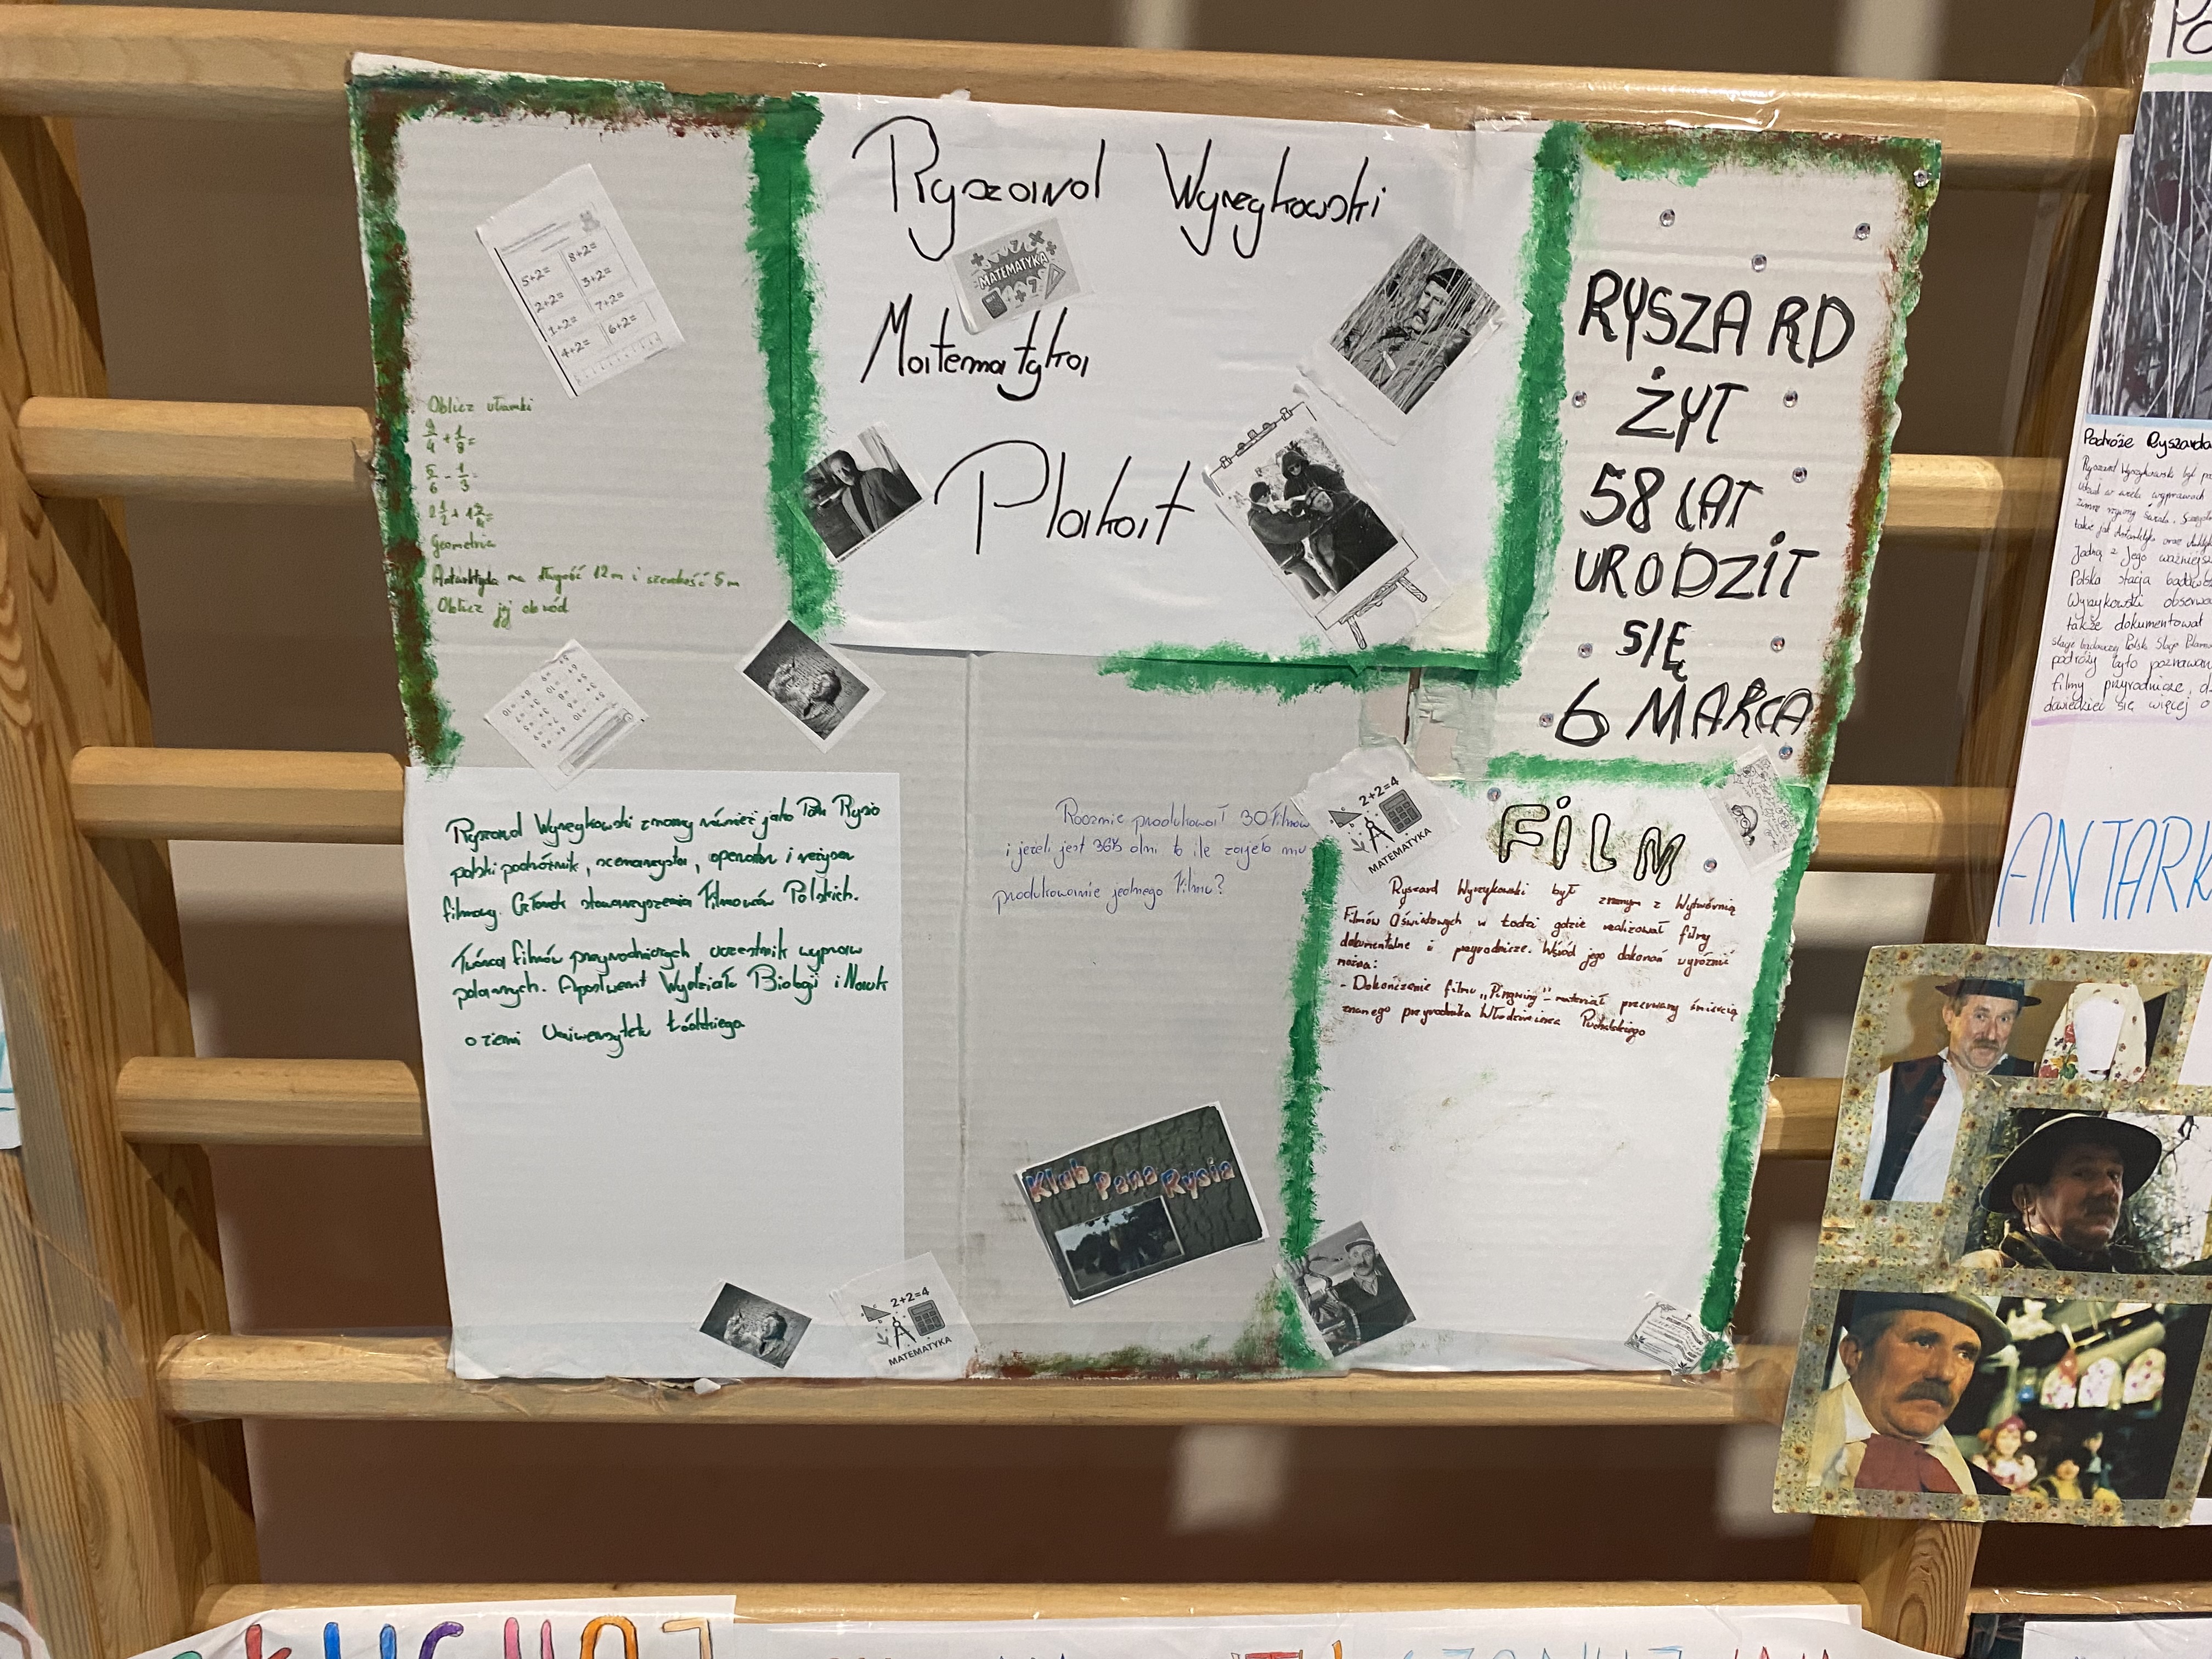 Ryszard Wyrzykowski
MATEMATYKA
Matematyka
Plakat
5+2=
8+2=
2+2=
3+2=
1+2=
7+2=
4+2=
6+2=
Oblicz ułamki
5/6 - 1/3 =
Geometria
Antarktyda ma długość 12m i szerokość 5m
Oblicz jej obwód
RYSZARD
ŻYŁ
58 LAT
URODZIŁ
SIĘ
6 MARCA
Ryszard Wyrzykowski znany również jako Pan Rysio
polski podróżnik, scenarzysta, operator i reżyser
filmowy. Członek stowarzyszenia Filmowców Polskich.
Twórca filmów przyrodniczych, uczestnik wypraw
polarnych. Absolwent Wydziału Biologii i Nauk
o ziemi Uniwersytetu Łódzkiego
Rocznie produkował 30 filmów
i jeżeli jest 365 dni to ile zajęło mu
produkowanie jednego filmu?
2+2=4
MATEMATYKA
FiLM
Ryszard Wyrzykowski był znanym z Wytwórnią
Filmów Oświatowych w Łodzi gdzie realizował filmy
dokumentalne i przyrodnicze. Wśród jego dokonań wyróżnić
można:
- Dokończenie filmu „Pingwiny" - materiał przerwany śmiercią
znanego przyrodnika Włodzimierza Puchalskiego
Klub Pana Rysia
2+2=4
MATEMATYKA
Podróże Ryszarda
Ryszard Wyrzykowski był
Jedną z jego
Polska stacja
Wyrzykowski
także dokumentował
podróży było
filmy przyrodnicze,
dowiedzieć się więcej o
ANTARK